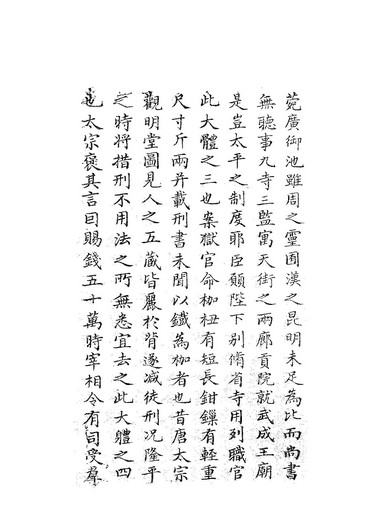 菀廣御池雖周之靈囿漢之昆明未足為比而尚書
無聽事九寺三監寓天街之兩廊貢院就武成王廟
是豈太平之制度耶臣願陛下别脩省寺用列職官
此大體之三也案獄官命枷杻有短長鉗鏁有輕重
尺寸斤兩并載刑書未聞以鐵為枷者也昔唐太宗
觀明堂圖見人之五藏皆麗於背遂減徒刑况隆平
之時将措刑不用法之所無悉宜去之此大體之四
也太宗褒其言因賜錢五十萬時宰相令有司受羣